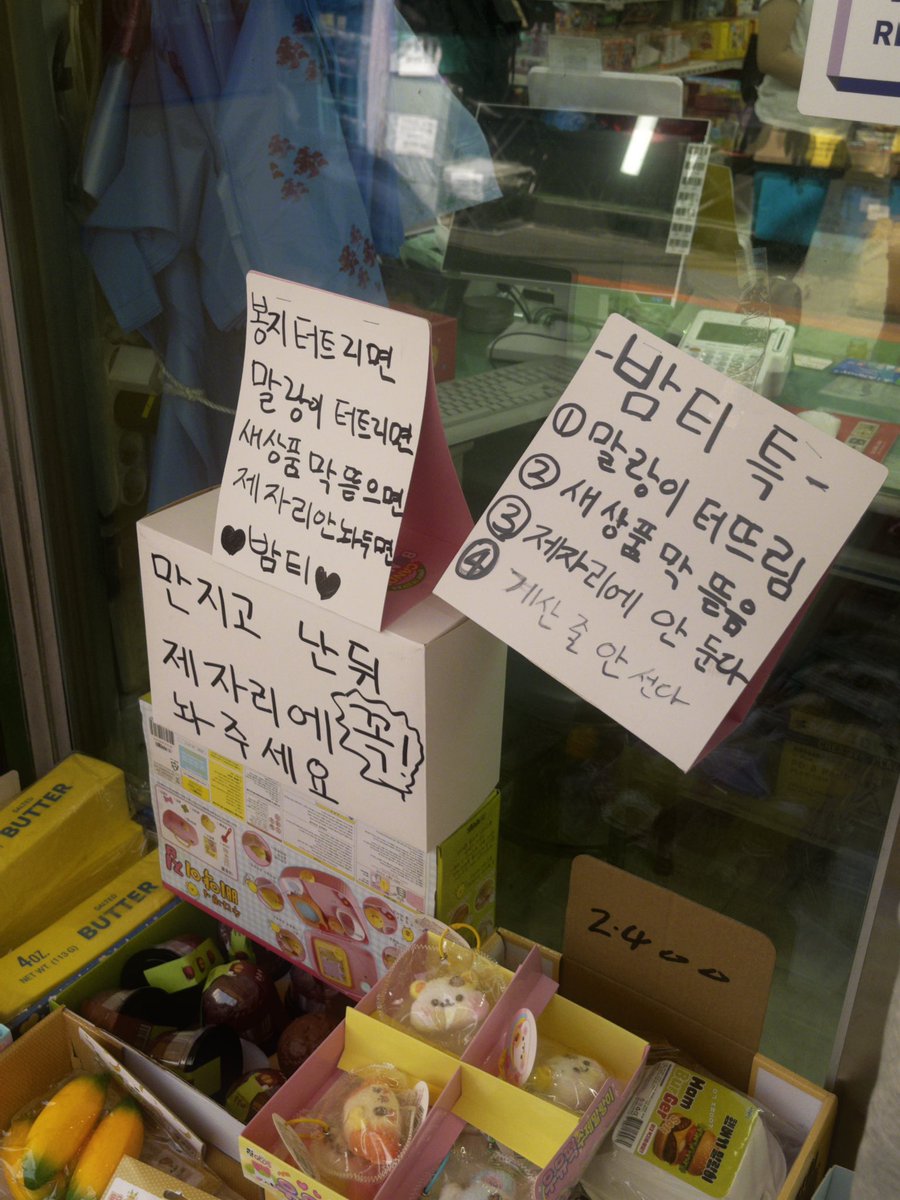 RE
봉지 터트리면
말랑이 터트리면
새상품 막 뜯으면
제자리 안 놔두면
♥밤티♥
-밤티 특-
① 말랑이 터뜨림
② 새 상품 막 뜯음
③ 제자리에 안 둔다
④ 계산 줄 안 선다
만지고 난 뒤
제자리에 꼭!
놔주세요
SALTED
BUTTER
SALTED
BUTTER
4oz.
NET WT (113 G)
2.400
Ham
BurGer